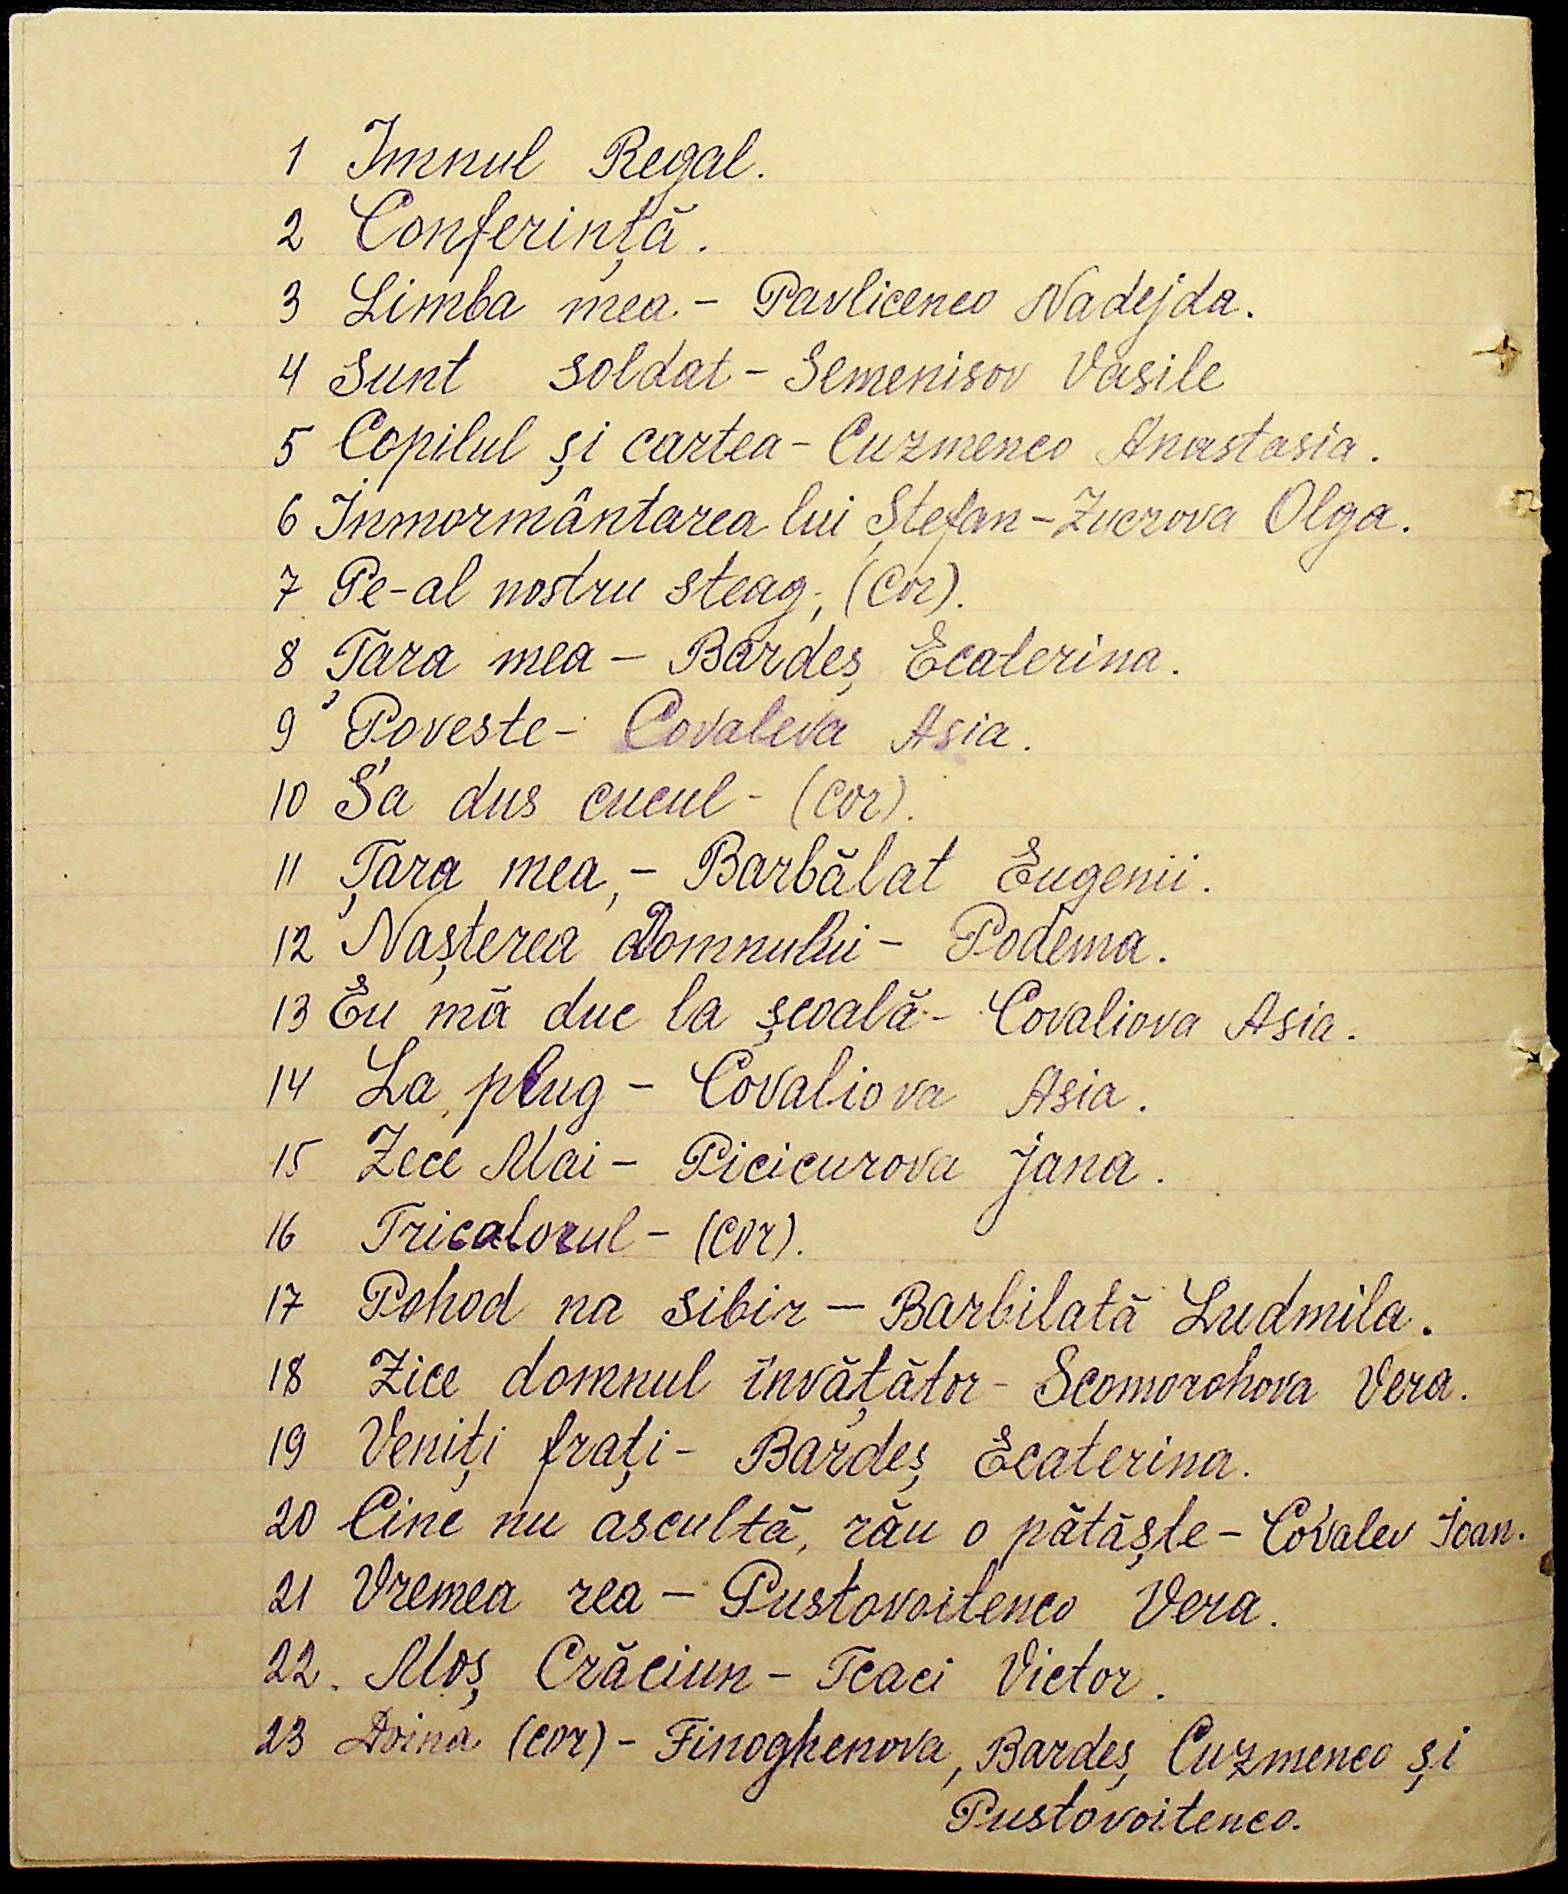 1 Imnul Regal.
2 Conferință.
3 Limba mea - Pavlicenco Nadejda.
4 Sunt soldat - Semenisov Vasile
5 Copilul și cartea - Cuzmenco Anastasia.
6 Inmormântarea lui Ștefan - Zucrova Olga.
7 Pe-al nostru steag, (Cor).
8 Țara mea - Bardeș Ecaterina.
9 Poveste - Covaleva Asia.
10 S'a dus cucul - (cor).
11 Țara mea, - Barbălat Eugenii.
12 Nașterea Domnului - Podema.
13 Eu mă duc la școală - Covaliova Asia.
14 La plug - Covaliova Asia.
15 Zece Mai - Picicurova Jana.
16 Tricalorul - (cor).
17 Pohod na sibir - Barbilată Ludmila.
18 Zice domnul învățător - Scomorohova Vera.
19 Veniți frați - Bardeș Ecaterina.
20 Cine nu ascultă, rău o pătăște - Covalev Ioan.
21 Vremea rea - Pustovoitenco Vera.
22. Moș Crăciun - Tcaci Victor.
23 Doina (cor) - Finoghenova, Bardeș, Cuzmenco și
Pustovoitenco.